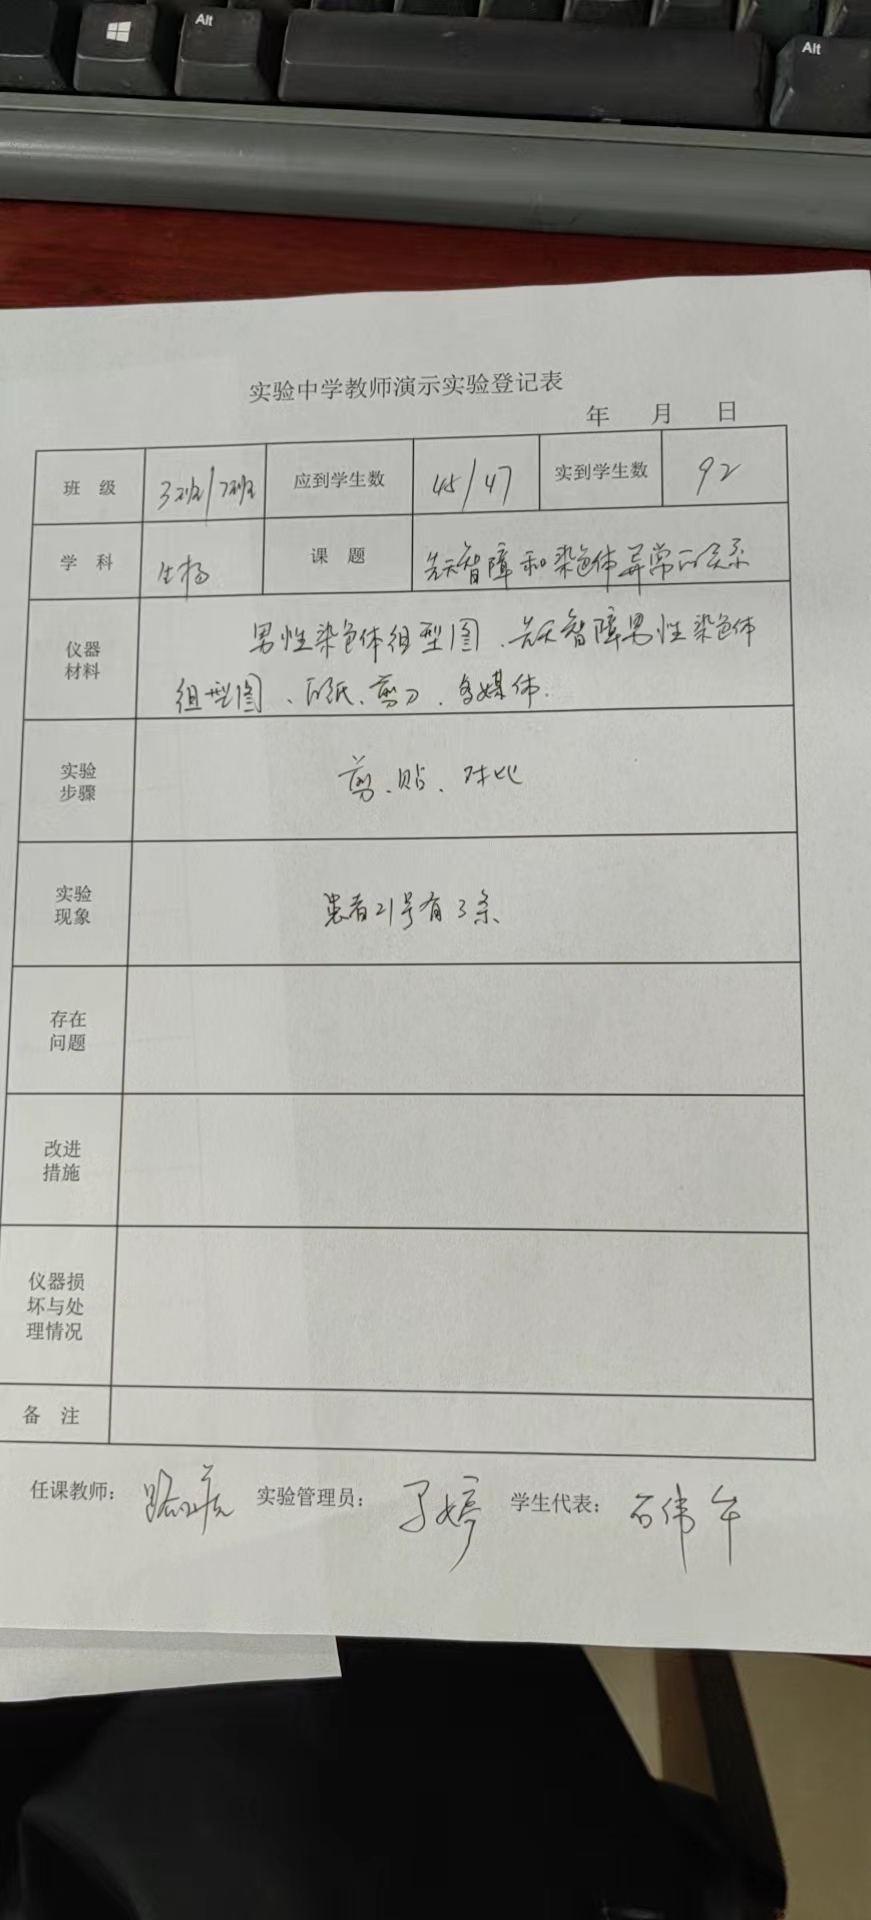 Alt
Alt
实验中学教师演示实验登记表
年 月 日
班 级 3班/7班 应到学生数 45/47 实到学生数 92
学 科 生物 课 题 先天智障和染色体异常的关系
仪器
材料
男性染色体组型图、先天智障男性染色体
组型图、白纸、剪刀、多媒体.
实验
步骤
剪、贴、对比
实验
现象
患者21号有3条
存在
问题
改进
措施
仪器损
坏与处
理情况
备 注
任课教师: 实验管理员: 婷 学生代表: 石伟